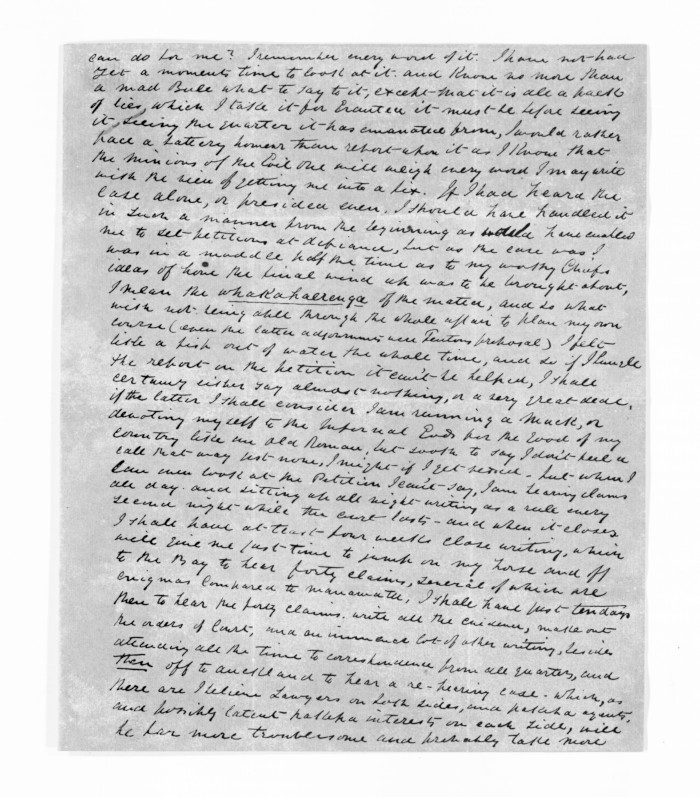 can do for me? I remember every word of it. I have not had
yet a moments time to look at it. and Know no more than
a mad Bull what to say to it, except that it is all a pack
of lies, which I take it for Granted it must be before seeing
it, seeing the quarter it has emanated from, I would rather
face a battery honour than report upon it as I Know that
the minions of the Evil One will weigh every word I may write
with the view of getting me into a fix. If I had heard the
case alone, or presided even, I should have handled it
in such a manner from the beginning as would have enabled
me to set petitions at defiance, but as the case was I
was in a muddle half the time as to my worthy Chiefs
ideas of how the final wind up was to be brought about,
I mean the whakahaerenga of the matter, and so what
with not being able through the whole affair to plan my own
course (even the latter adjournments were Fentons proposal) I felt
like a fish out of water the whole time, and so if I bungle
the report on the petition it can't be helped, I shall
certainly either say almost nothing, or a very great deal,
if the latter I shall consider I am running a muck, or
devoting myself to the Infernal Gods for the Good of my
country like an old Roman, but sooth to say I don't feel a
call that way just now, I might if I get vexed - but when I
can even look at the Petition I can't say, I am hearing claims
all day. and sitting up all night writing as a rule every
second night while the court lasts - and when it closes
I shall have at least four weeks close writing, which
will give me just time to jump on my horse and off
to the Bay to hear forty claims, several of which are
enigmas compared to manawatu, I shall have just ten days
then to hear the forty claims. write all the evidence, make out
the orders of Court, and an immence lot of other writing, besides
attending all the time to correspondence from all quarters, and
then off to auckland to hear a re-hearing case - which, as
there are I believe Lawyers on both sides, and pakeha agents,
and possibly latent pakeha interests on each side, will
be far more troublesome and probably take more